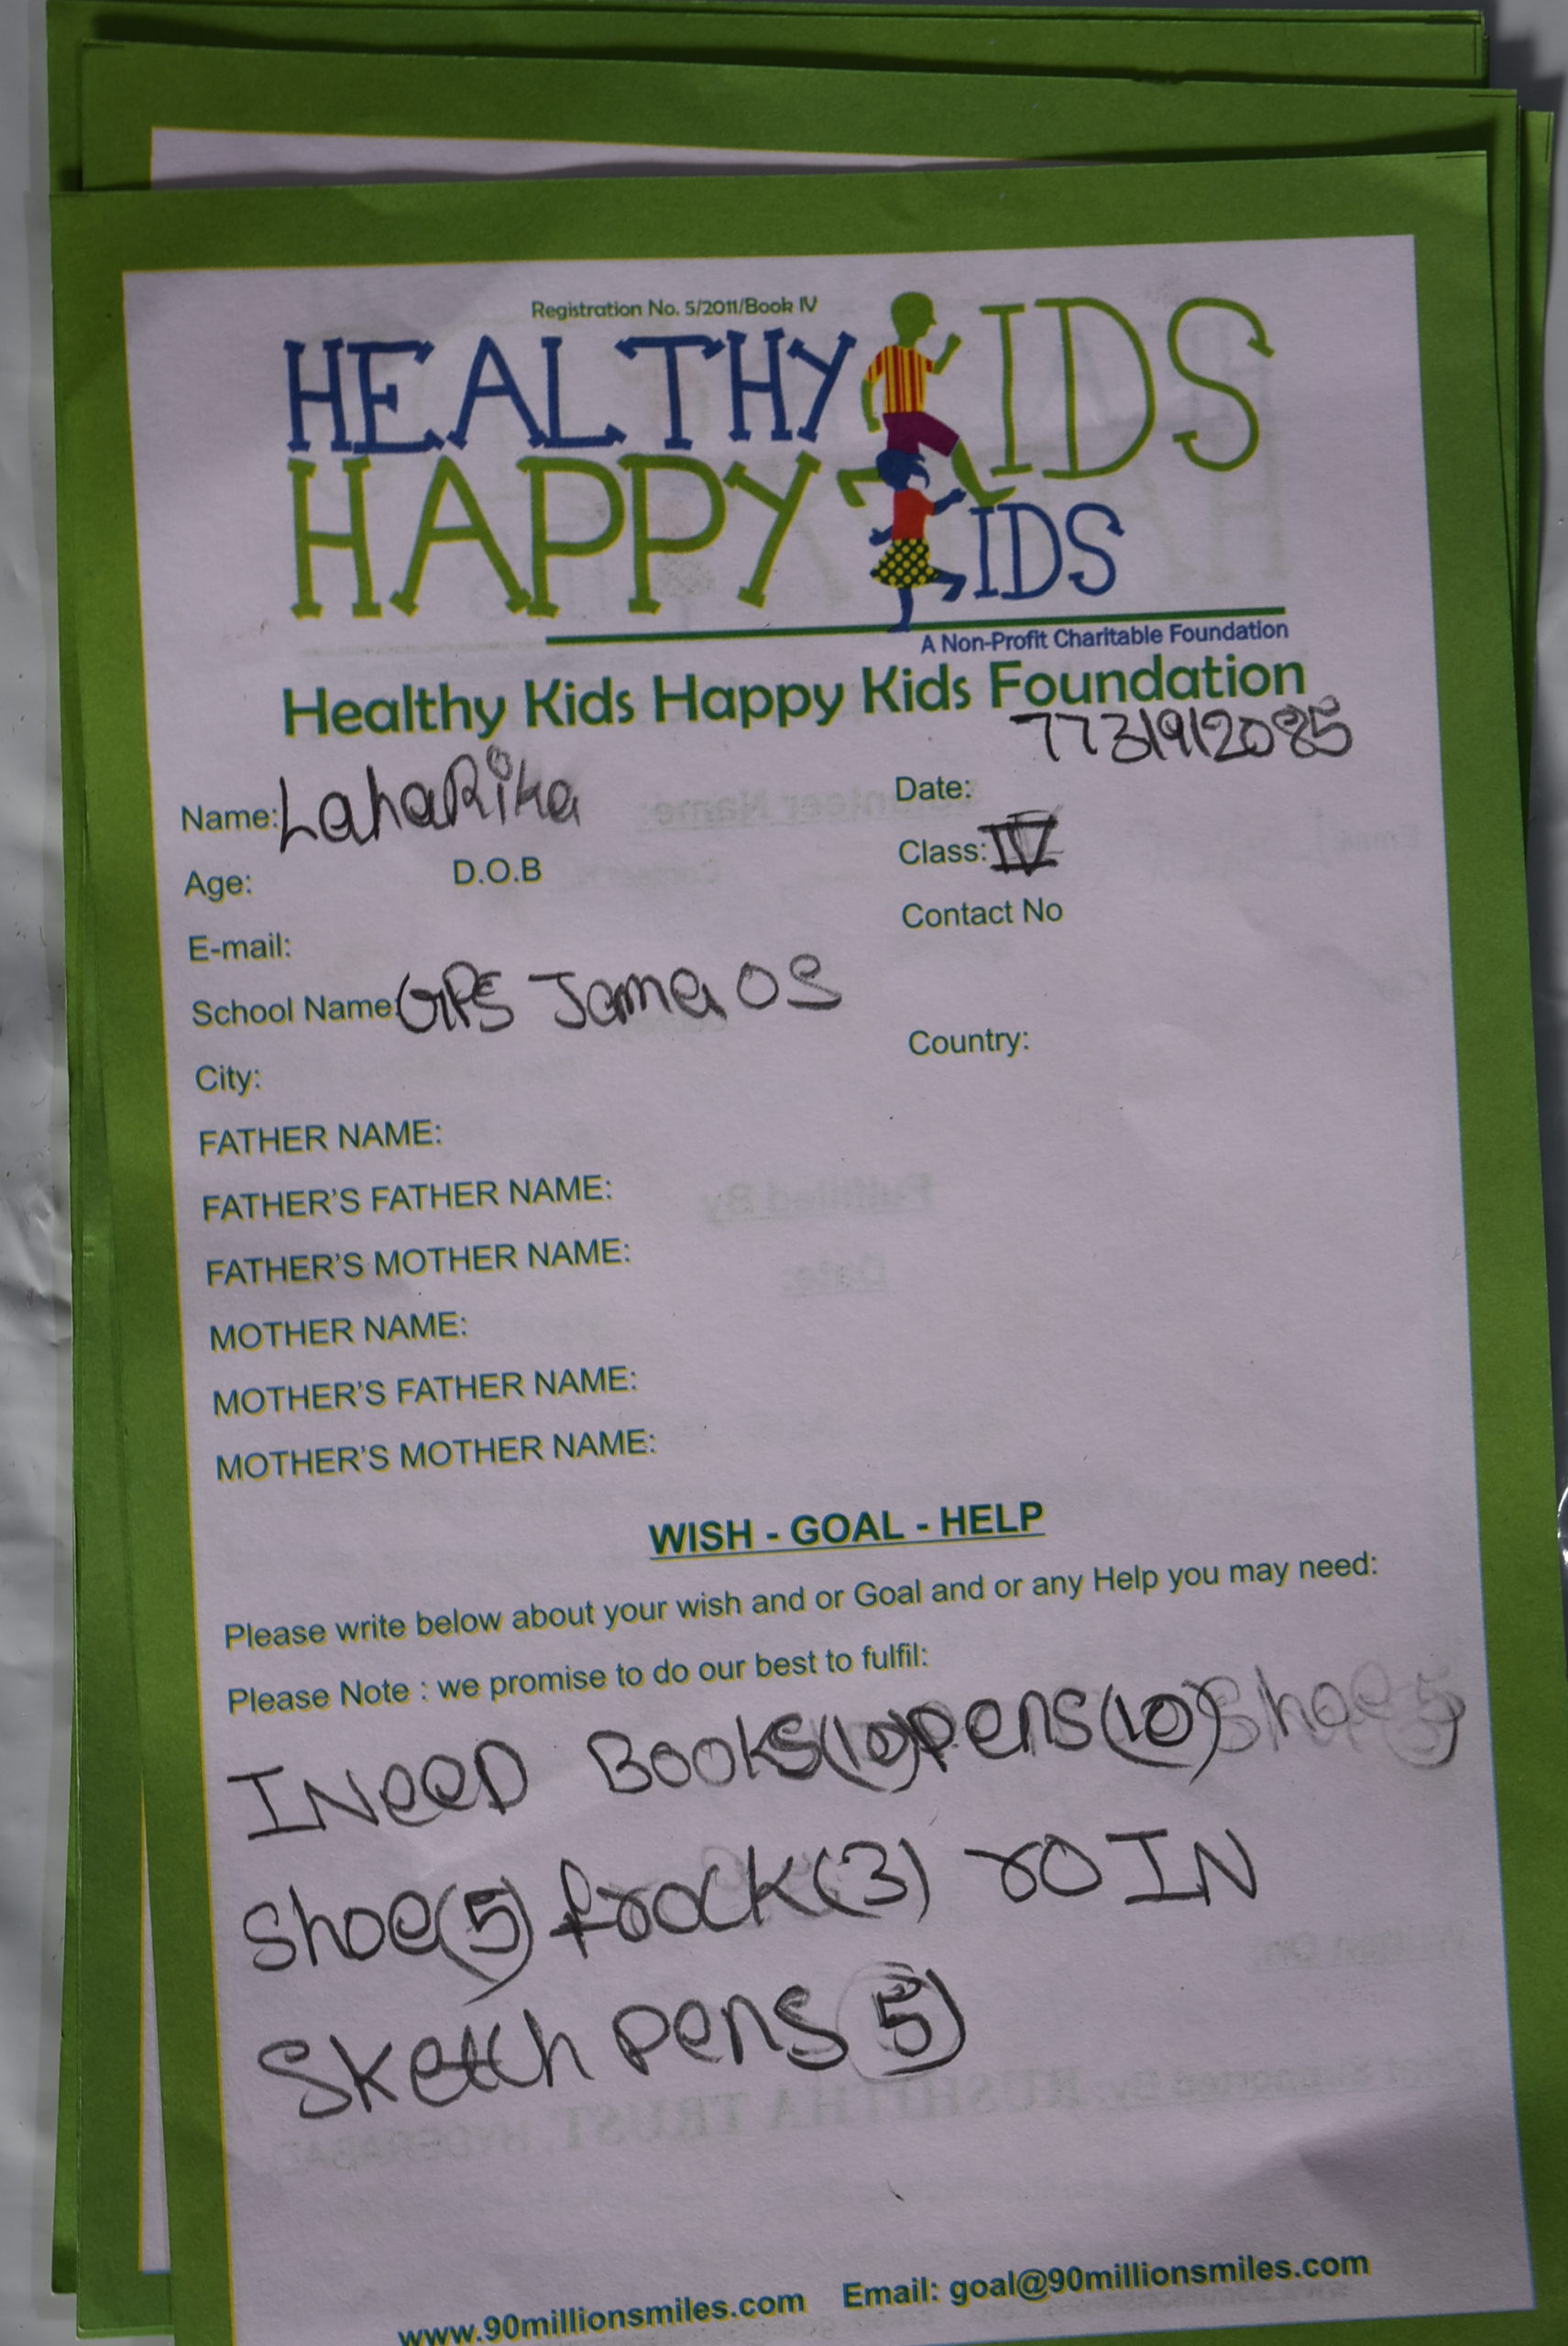 Registration No. 5/2011/Book IV
HEALTHY KIDS
HAPPY KIDS
A Non-Profit Charitable Foundation
Healthy Kids Happy Kids Foundation
7731912085
Name: LahaRika
Date:
Class: IV
Age: D.O.B
Contact No
E-mail:
School Name: GPS Jama OS
Country:
City:
FATHER NAME:
FATHER'S FATHER NAME:
FATHER'S MOTHER NAME:
MOTHER NAME:
MOTHER'S FATHER NAME:
MOTHER'S MOTHER NAME:
WISH - GOAL - HELP
Please write below about your wish and or Goal and or any Help you may need:
Please Note : we promise to do our best to fulfil:
I NeeD Books(10) pens(10) Shoe 5
Shoe(5) frock(3) roIN
Sketch pens 5)
www.90millionsmiles.com Email: goal@90millionsmiles.com